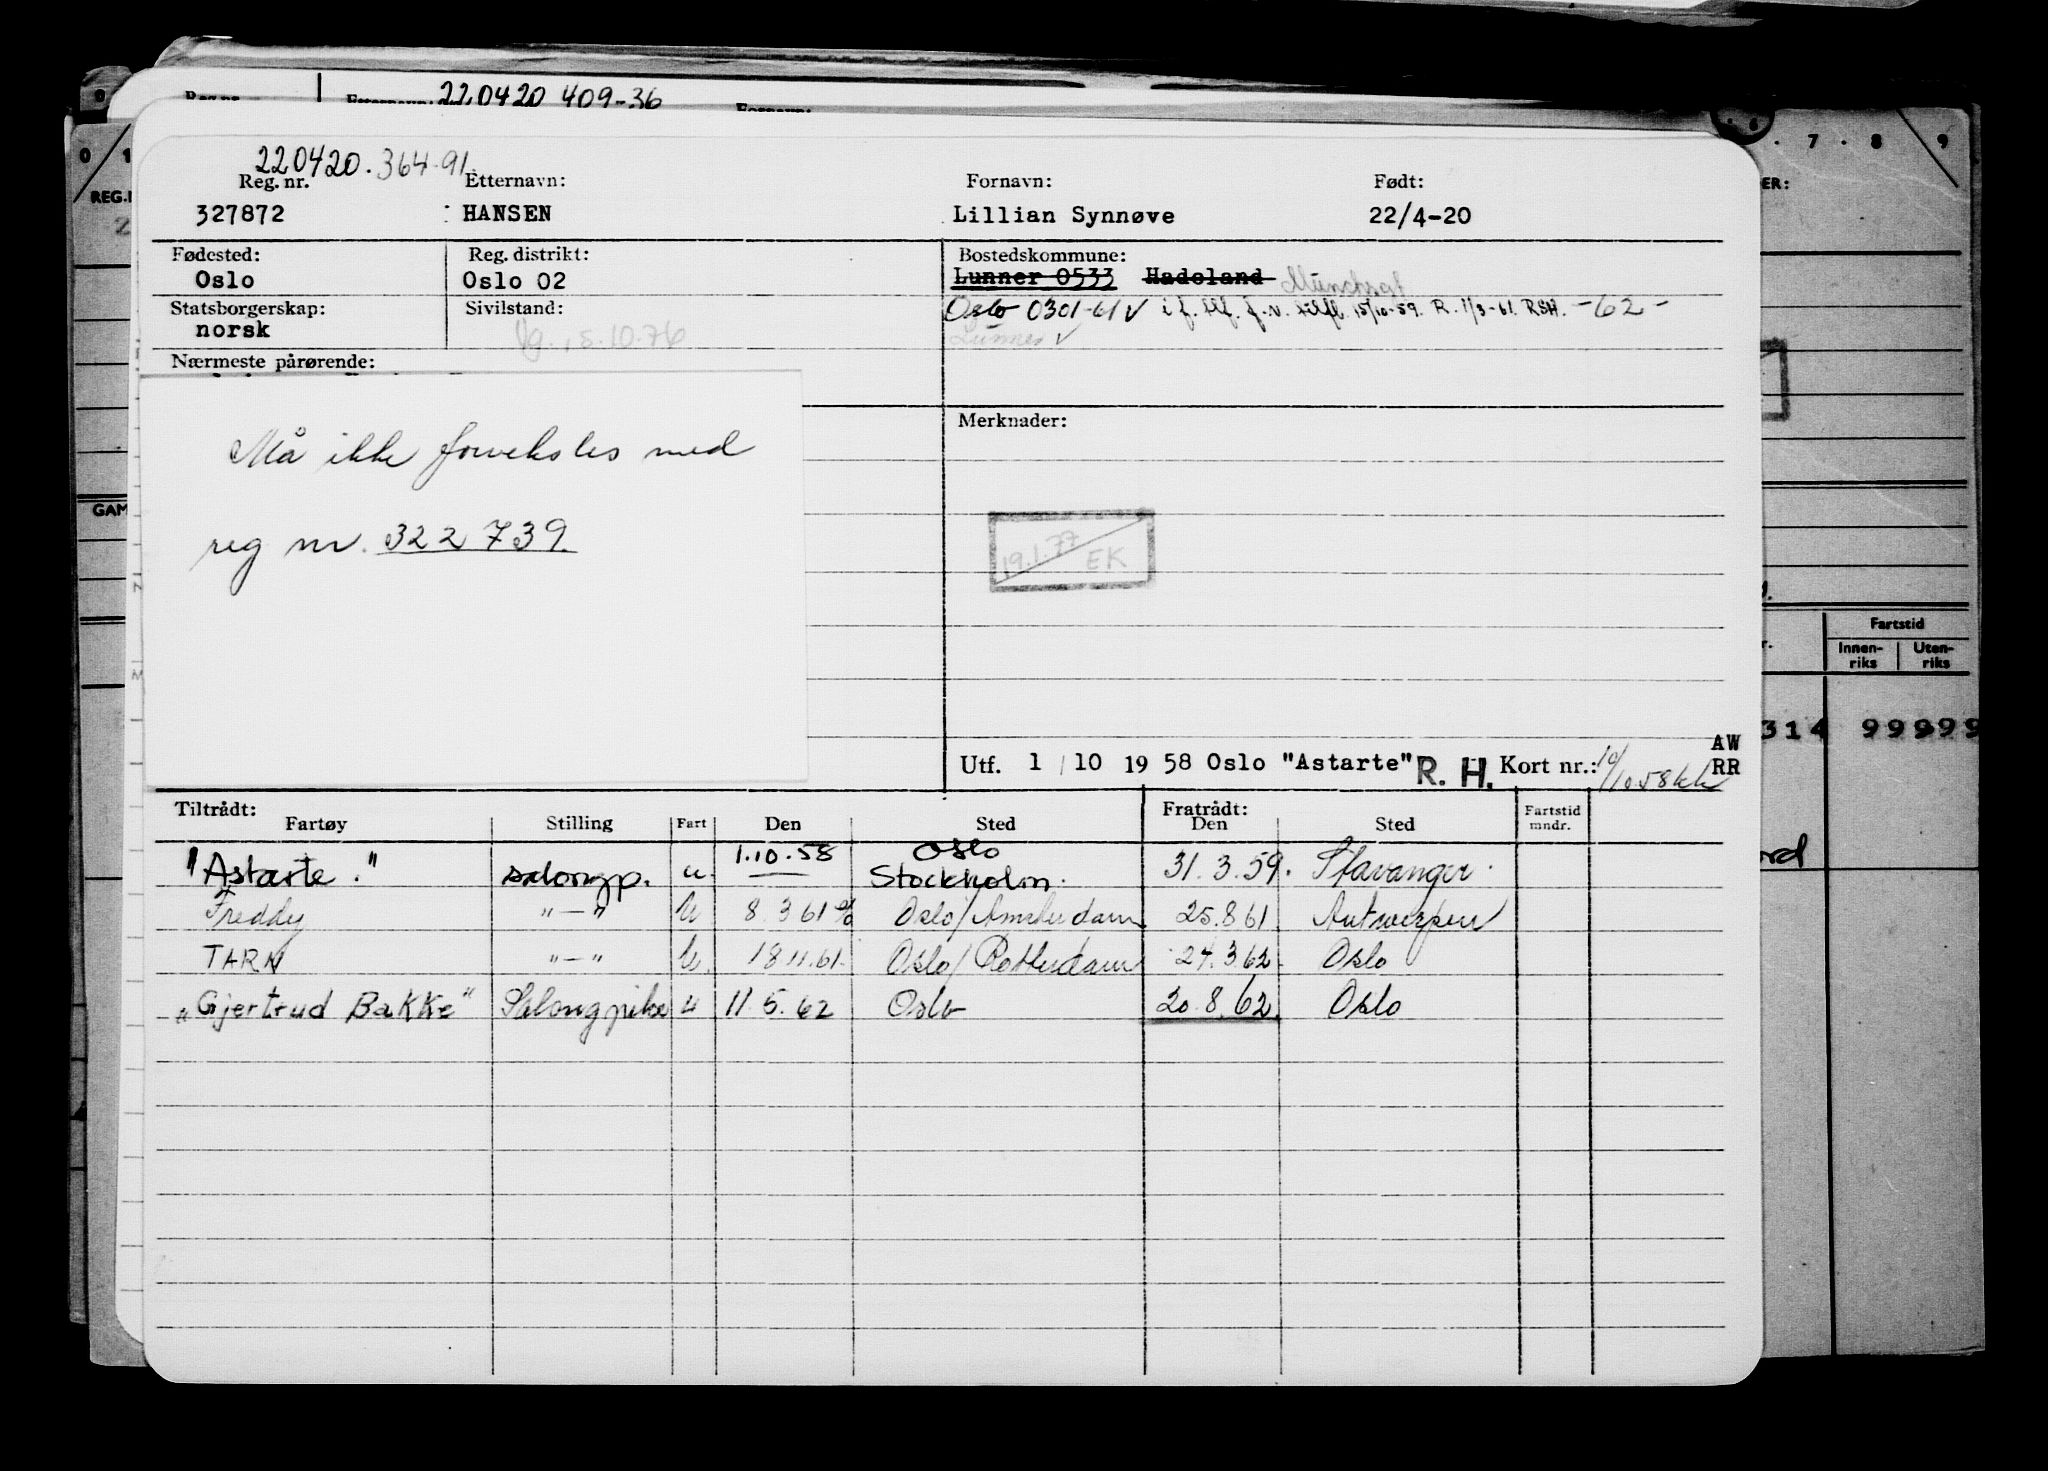 220420 409-36
220420.364-91
Reg. nr. Etternavn: Fornavn: Født:
327872 HANSEN Lillian Synnøve 22/4-20
Fødested: Reg. distrikt: Bostedskommune:
Oslo Oslo 02 Lunner 0533 Hadeland
Statsborgerskap: Sivilstand:
norsk
Oslo 0301-61 i f. f. v. 15/10-59. R. 1/3-61. RSH. -62-
Lunner
Nærmeste pårørende:
Merknader:
Må ikke forveksles med
reg nr. 322739.
19.1.77 EK
Utf. 1/10 1958 Oslo "Astarte" R. H. Kort nr.:
AW
RR
Tiltrådt: Fratrådt:
Fartøy Stilling Fart Den Sted Den Sted Fartstid mndr.
"Astarte." salongp. u 1.10.58 Oslo Stockholm. 31.3.59. Stavanger.
Freddy "—" U 8.3 61 Oslo/Amsterdam 25.8 61 Antwerpen
TARN "—" U. 18 11.61. Oslo/Rotterdam 24.3 62 Oslo
"Gjertrud Bakke" Salongpike u 11.5.62 Oslo 20.8.62. Oslo
0 1
7 . 8 9
Fartstid
Innen-riks Uten-riks
314 99999